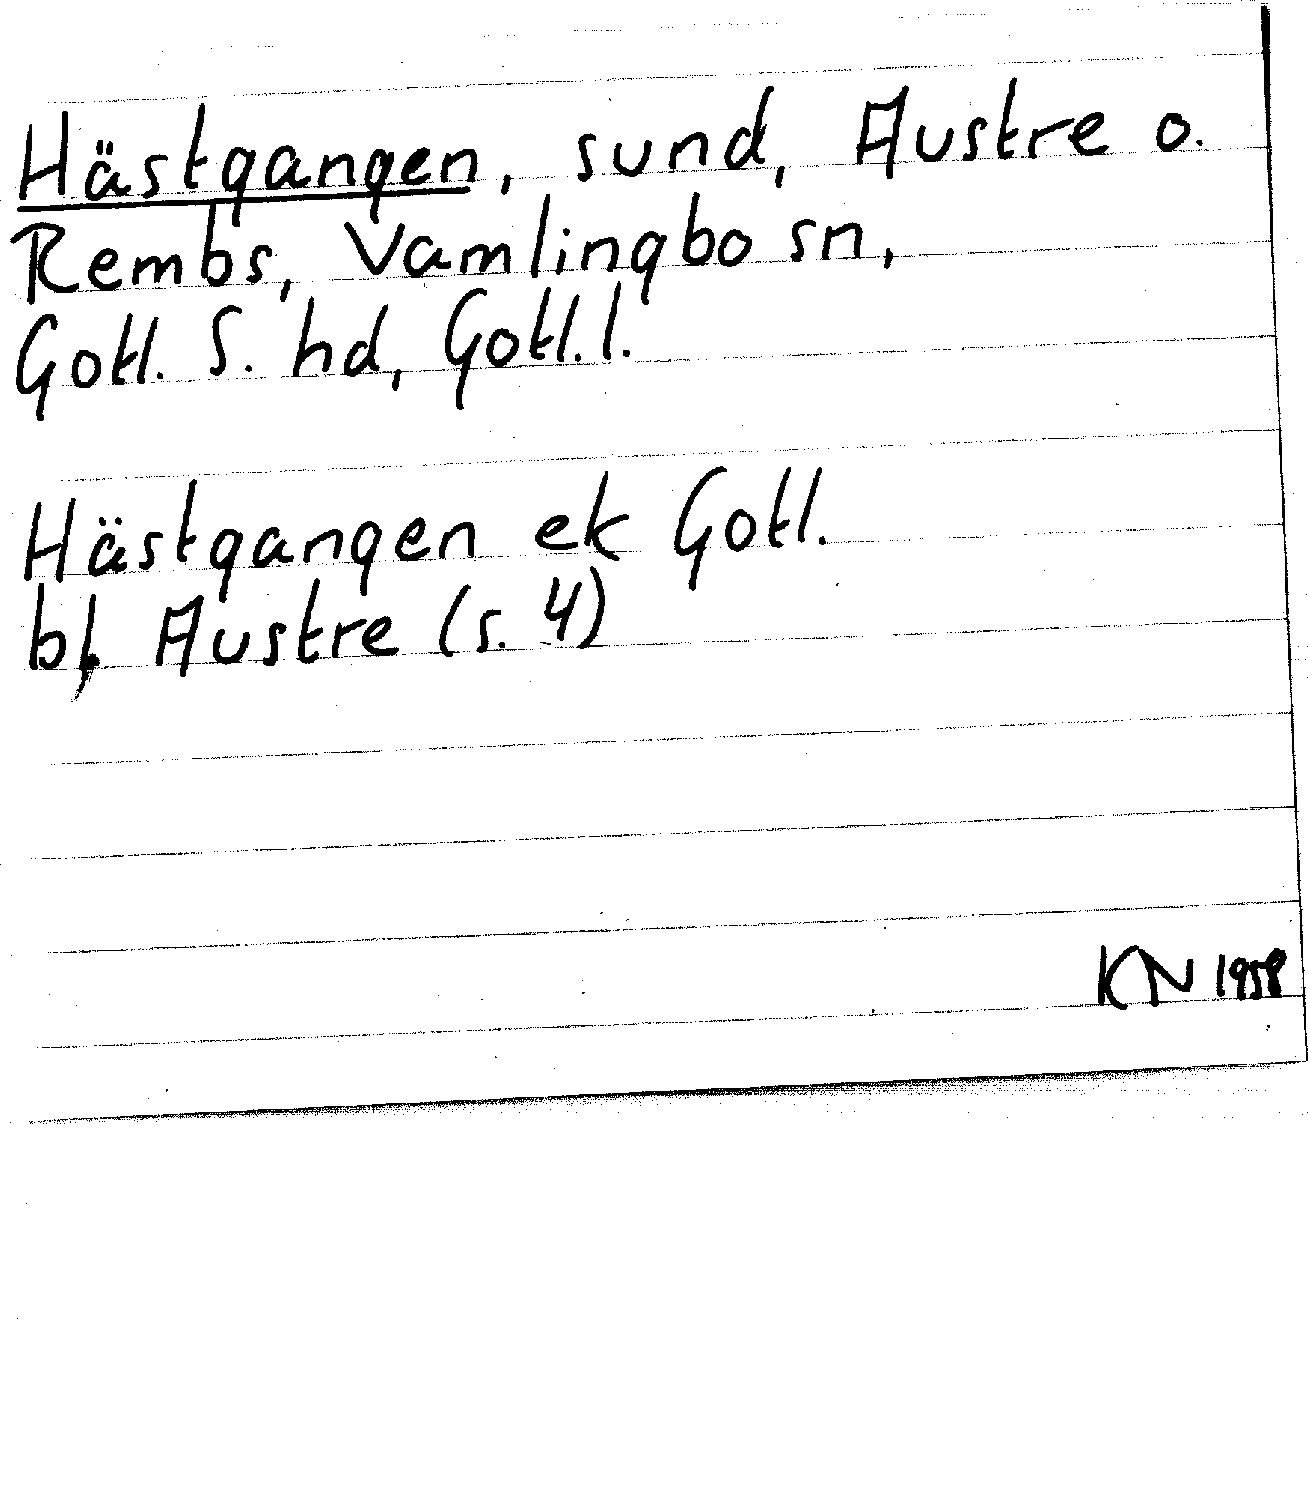 Hästgangen, sund, Austre o.
Rembs, Vamlingbo sn,
Gotl. S. hd, Gotl. l.
Hästgangen ek Gotl.
bl, Austre (s. 4)
KN 1958